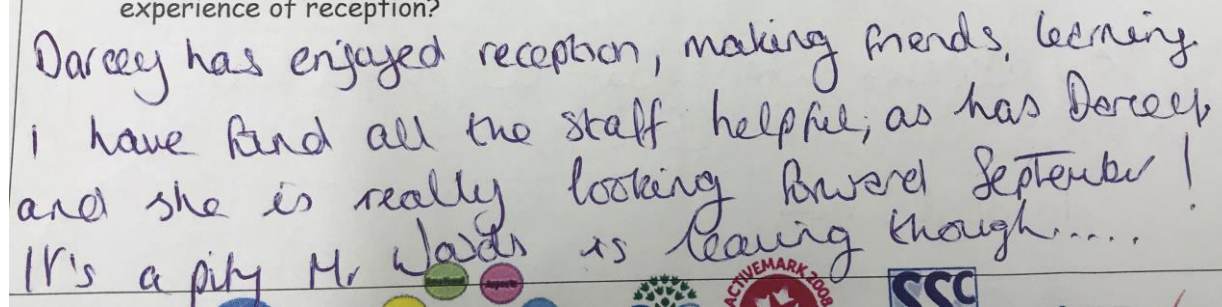 experience of reception?
Darcey has enjoyed reception, making friends, learning
i have found all the staff helpful, as has Darcey
and she is really looking forward September!
It's a pity Mr is leaving though.....
ACTIVEMARK 2008
SSC